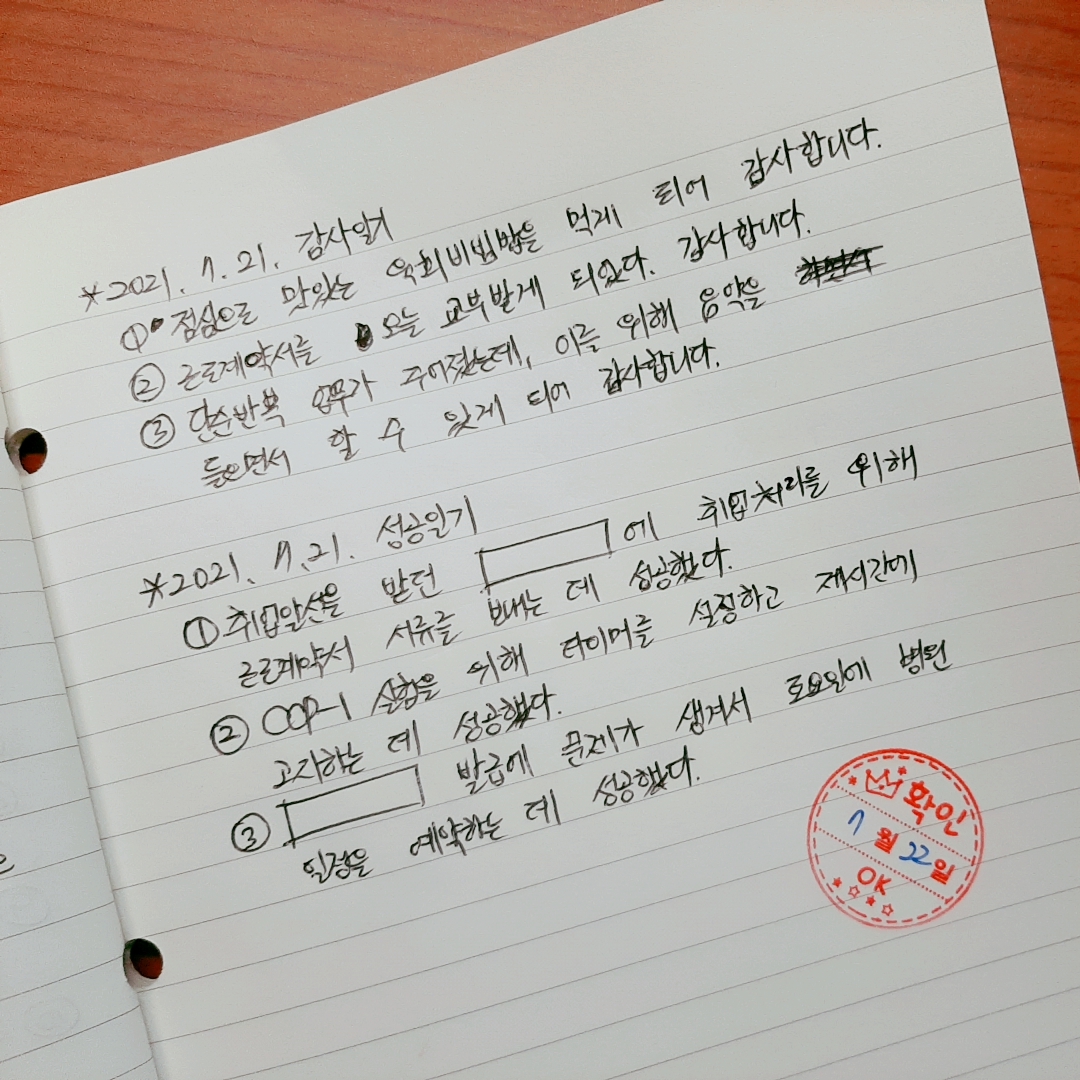 *2021. 7. 21. 감사일기
① 점심으로 맛있는 육회비빔밥을 먹게 되어 감사합니다.
② 근로계약서를 오늘 교부받게 되었다. 감사합니다.
③ 단순반복 업무가 주어졌는데, 이를 위해 음악을
들으면서 할 수 있게 되어 감사합니다.
*2021. 7. 21. 성공일기
① 취업알선을 받던 에 취업처리를 위해
근로계약서 서류를 보내는 데 성공했다.
② 실험을 위해 타이머를 설정하고 제시간에
고지하는 데 성공했다.
③ 발급에 문제가 생겨서 토요일에 병원
일정을 예약하는 데 성공했다.
확인
7월 22일
OK